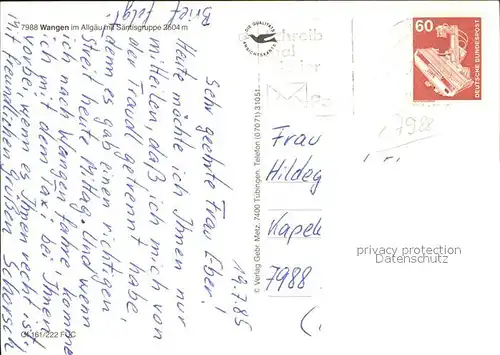 7988 Wangen im Allgäu mit Säntisgruppe 2504 m
19.7.85
Sehr geehrte Frau Eber!
Heute möchte ich Ihnen nur
mitteilen, daß ich mich von
der Traudl getrennt habe,
denn es gab einen richtigen
Streit heute Mittag. Und wenn
ich nach Wangen fahre, komme
ich mit dem Taxi bei Ihnen
vorbei, wenn es Ihnen recht ist.
Mit freundlichen Grüßen Schorsch
Brief folgt.
CK 161/222 FGC
© Verlag Gebr. Metz, 7400 Tübingen, Telefon (07071) 31051
DIE QUALITÄTS
ANSICHTSKARTE
chreib
mal
60
DEUTSCHE BUNDESPOST
7988
Frau
Hildeg
Kapell
7988
privacy protection
Datenschutz